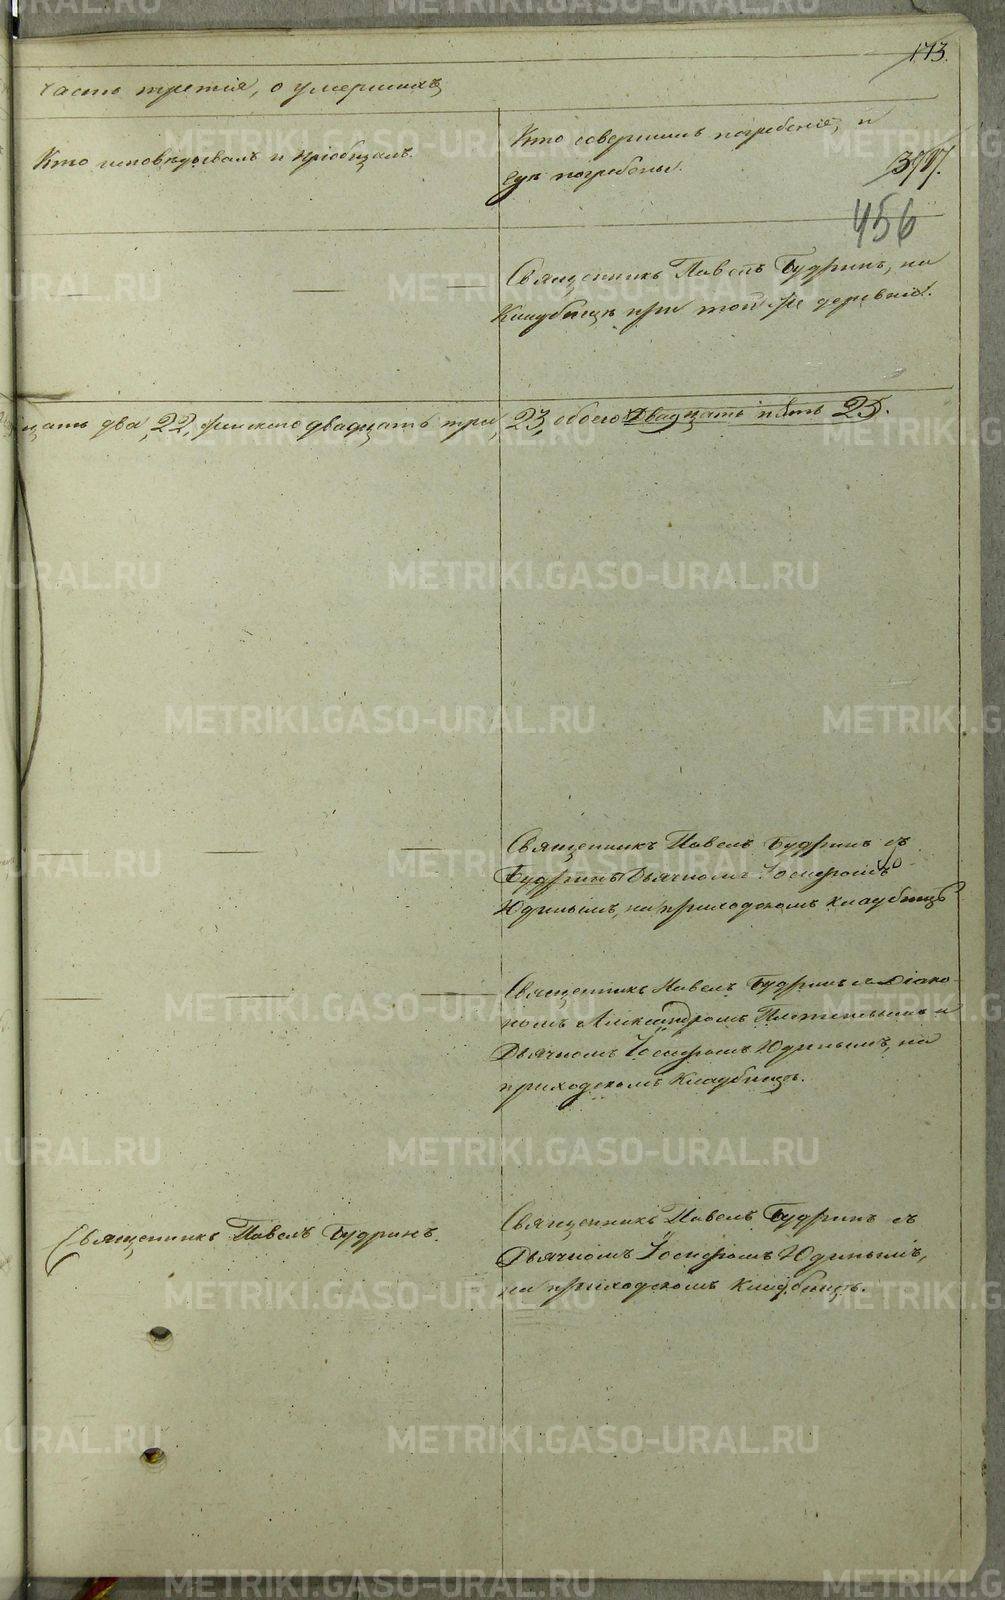 173.
часть третія, о умершихъ
Кто исповѣдывалъ и пріобщалъ.
Кто совершилъ погребеніе, и
гдѣ погребены.
397.
456
Священникъ Павелъ Будринъ, на
Кладбищѣ при той же деревнѣ.
цать два, 22, женского двадцать три, 23, обоего двадцать пять 25.
Священникъ Павелъ Будринъ съ
Дьячкомъ Іосифомъ
Юдинымъ, на приходскомъ кладбищѣ
Священникъ Павелъ Будринъ съ Діако-
номъ Александромъ и
Дьячкомъ Іосифомъ Юдинымъ, на
приходскомъ Кладбищѣ.
Священникъ Павелъ Будринъ.
Священникъ Павелъ Будринъ съ
Дьячкомъ Іосифомъ Юдинымъ,
на приходскомъ Кладбищѣ.
METRIKI.GASO-URAL.RU